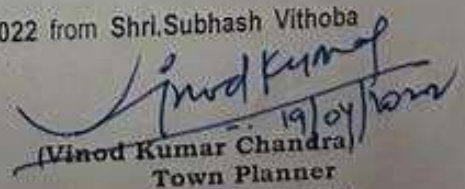 022 from Shri.Subhash Vithoba
Vinod Kumar
19/04/2022
(Vinod Kumar Chandra)
Town Planner